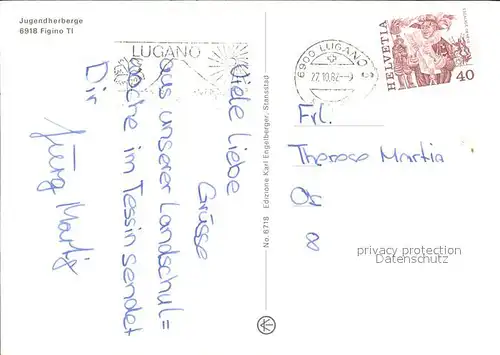 Jugendherberge
6918 Figino TI
LUGANO
6900 LUGANO 2
27.10.82
HELVETIA
40
Viele Liebe
Grüsse
aus unserer Landschul=
woche im Tessin sendet
Dir
Jürg Martig
No. 6718 Edizione Karl Engelberger, Stansstad
Frl.
Theresa Martig
8
privacy protection
Datenschutz